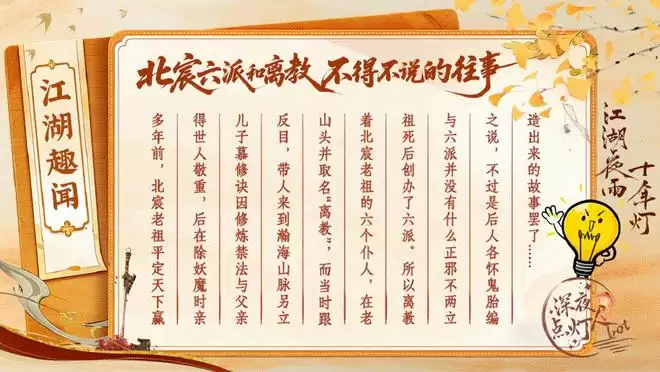 北宸六派和离教 不得不说的往事
江湖趣闻
多年前，北宸老祖平定天下赢
得世人敬重，后在除妖魔时亲
儿子慕修诀因修炼禁法与父亲
反目，带人来到瀚海山脉另立
山头并取名“离教”，而当时跟
着北宸老祖的六个仆人，在老
祖死后创办了六派。所以离教
与六派并没有什么正邪不两立
之说，不过是后人各怀鬼胎编
造出来的故事罢了……
江湖夜雨
十年灯
深夜
点灯人bot